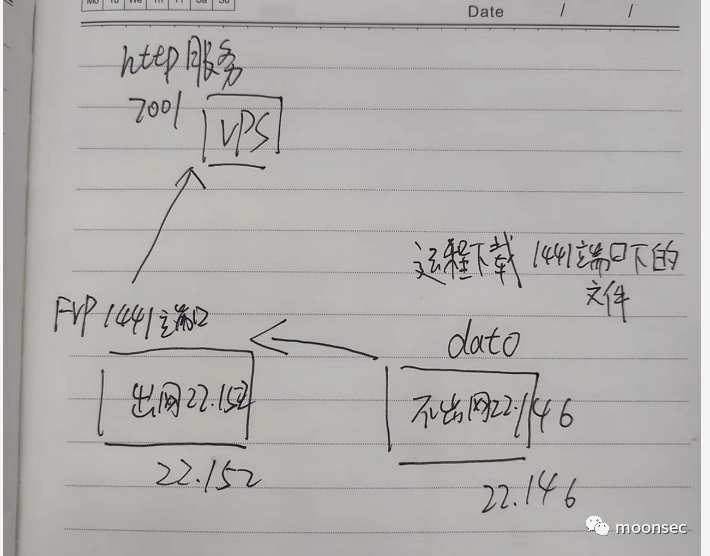 Mo Tu We Th Fr Sa Su
Date / /
http服务
7001
VPS
远程下载 1441端口下的
文件
Frp 1441端口
dato
出网22.152
不出网22.146
22.152
22.146
moonsec